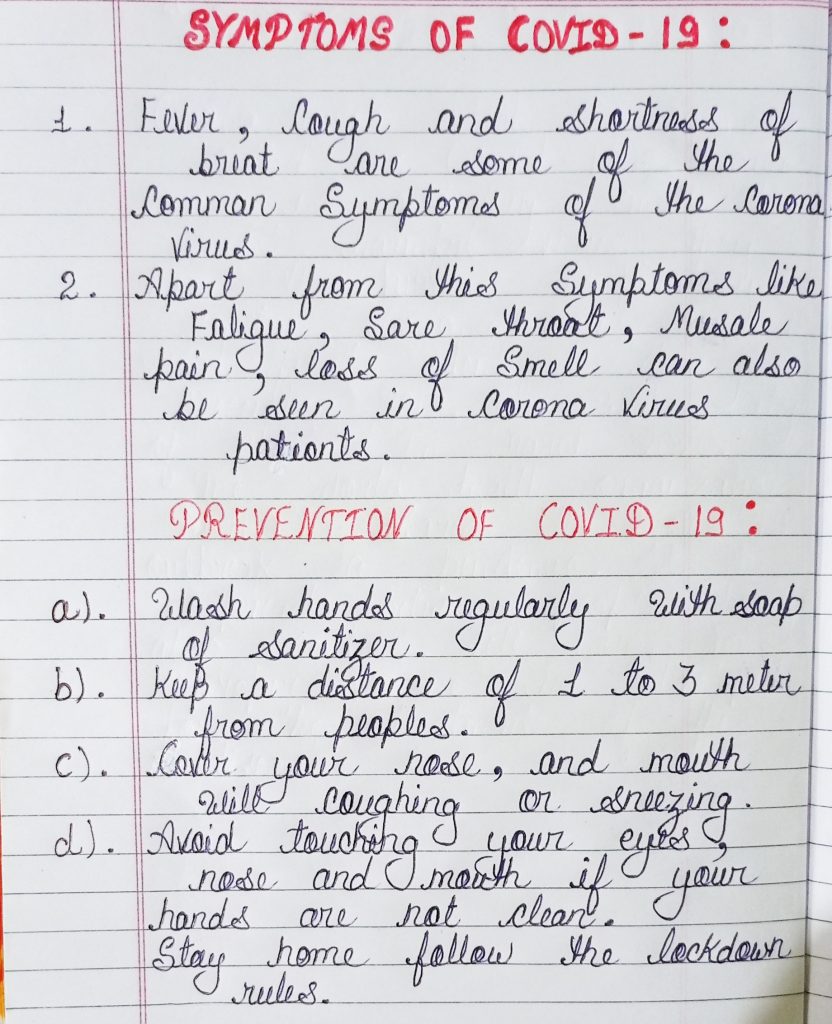 SYMPTOMS OF COVID-19:
1. Fever, Cough and shortness of
breat are some of the
Comman Symptoms of the Corona
Virus.
2. Apart from this Symptoms like
Faligue, Sare throat, Musale
pain, loss of Smell can also
be seen in Corona Virus
pationts.
PREVENTION OF COVID-19:
a). Wash hands regularly with soap
of sanitizer.
b). Keep a distance of 1 to 3 meter
from peoples.
c). Cover your nose, and mouth
will coughing or sneezing.
d). Avoid touching your eyes,
nose and mouth if your
hands are not clean.
Stay home follow the lockdown
rules.